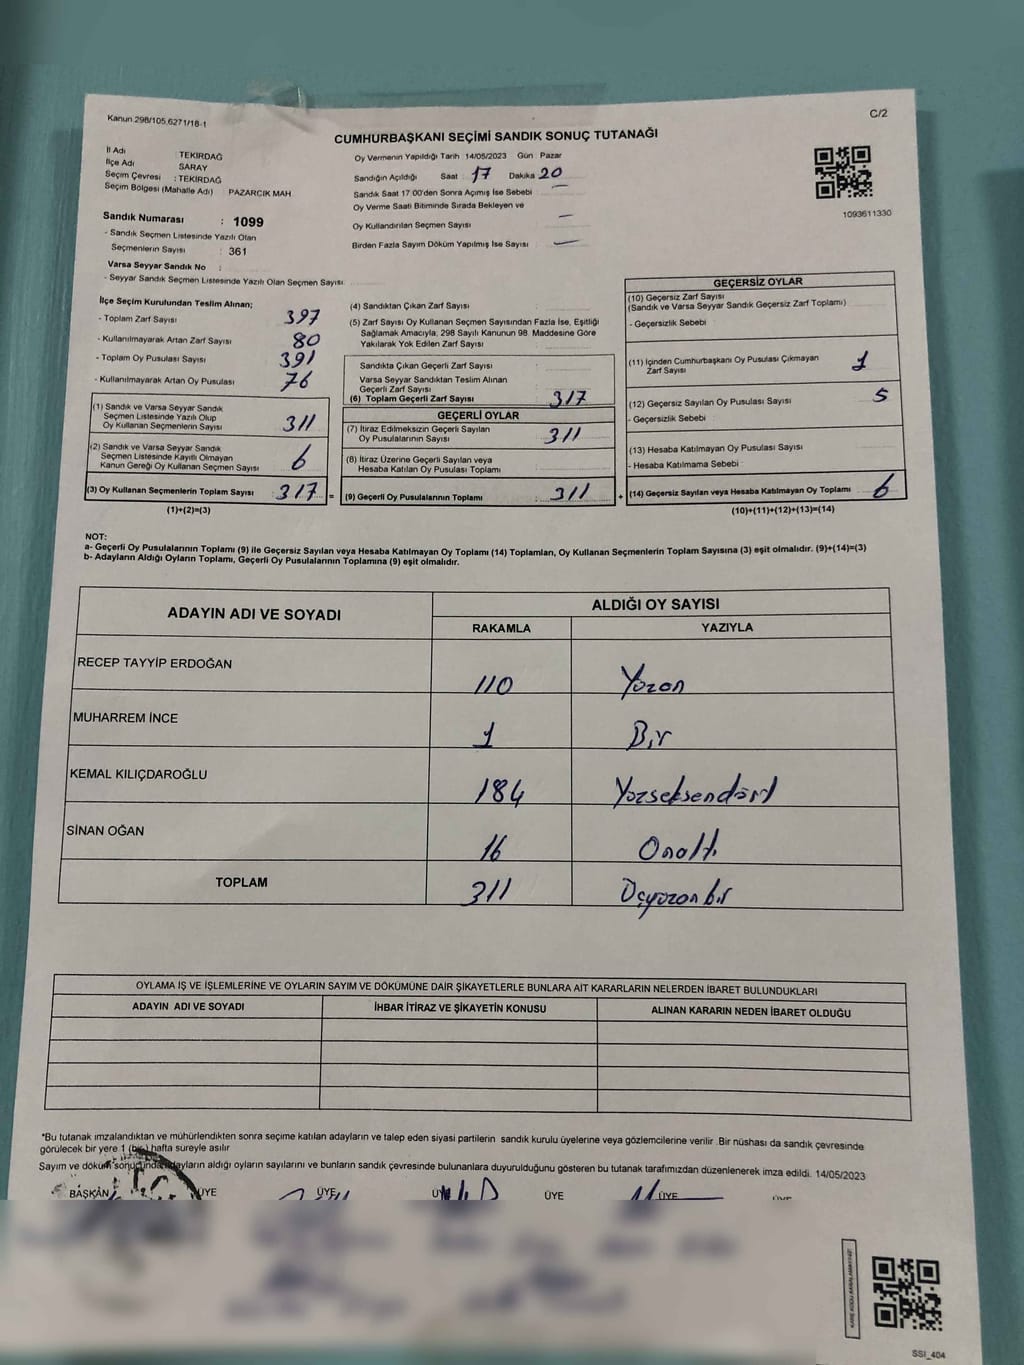 Kanun 298/105,6271/18-1
C/2
CUMHURBAŞKANI SEÇİMİ SANDIK SONUÇ TUTANAĞI
İl Adı : TEKİRDAĞ
İlçe Adı SARAY
Seçim Çevresi : TEKİRDAĞ
Seçim Bölgesi (Mahalle Adı) PAZARCIK MAH
Sandık Numarası : 1099
- Sandık Seçmen Listesinde Yazılı Olan
Seçmenlerin Sayısı : 361
Varsa Seyyar Sandık No :
- Seyyar Sandık Seçmen Listesinde Yazılı Olan Seçmen Sayısı:
Oy Vermenin Yapıldığı Tarih 14/05/2023 Gün : Pazar
Sandığın Açıldığı Saat : 17 Dakika 20
Sandık Saat 17:00'den Sonra Açımış İse Sebebi : —
Oy Verme Saati Bitiminde Sırada Bekleyen ve
Oy Kullandırılan Seçmen Sayısı : —
Birden Fazla Sayım Döküm Yapılmış İse Sayısı : —
1093611330
İlçe Seçim Kurulundan Teslim Alınan;
- Toplam Zarf Sayısı : 397
- Kullanılmayarak Artan Zarf Sayısı : 80
- Toplam Oy Pusulası Sayısı : 391
- Kullanılmayarak Artan Oy Pusulası : 76
(1) Sandık ve Varsa Seyyar Sandık
Seçmen Listesinde Yazılı Olup
Oy Kullanan Seçmenlerin Sayısı : 311
(2) Sandık ve Varsa Seyyar Sandık
Seçmen Listesinde Kayıtlı Olmayan
Kanun Gereği Oy Kullanan Seçmen Sayısı : 6
(3) Oy Kullanan Seçmenlerin Toplam Sayısı : 317 =
(1)+(2)=(3)
(4) Sandıktan Çıkan Zarf Sayısı :
(5) Zarf Sayısı Oy Kullanan Seçmen Sayısından Fazla İse, Eşitliği
Sağlamak Amacıyla, 298 Sayılı Kanunun 98. Maddesine Göre
Yakılarak Yok Edilen Zarf Sayısı :
Sandıkta Çıkan Geçerli Zarf Sayısı :
Varsa Seyyar Sandıktan Teslim Alınan
Geçerli Zarf Sayısı :
(6) Toplam Geçerli Zarf Sayısı : 317
GEÇERLİ OYLAR
(7) İtiraz Edilmeksizin Geçerli Sayılan
Oy Pusulalarının Sayısı : 311
(8) İtiraz Üzerine Geçerli Sayılan veya
Hesaba Katılan Oy Pusulası Toplamı :
(9) Geçerli Oy Pusulalarının Toplamı : 311 +
GEÇERSİZ OYLAR
(10) Geçersiz Zarf Sayısı
(Sandık ve Varsa Seyyar Sandık Geçersiz Zarf Toplamı) :
- Geçersizlik Sebebi :
(11) İçinden Cumhurbaşkanı Oy Pusulası Çıkmayan
Zarf Sayısı : 1
(12) Geçersiz Sayılan Oy Pusulası Sayısı : 5
- Geçersizlik Sebebi :
(13) Hesaba Katılmayan Oy Pusulası Sayısı :
- Hesaba Katılmama Sebebi :
(14) Geçersiz Sayılan veya Hesaba Katılmayan Oy Toplamı : 6
(10)+(11)+(12)+(13)=(14)
NOT:
a- Geçerli Oy Pusulalarının Toplamı (9) ile Geçersiz Sayılan veya Hesaba Katılmayan Oy Toplamı (14) Toplamları, Oy Kullanan Seçmenlerin Toplam Sayısına (3) eşit olmalıdır. (9)+(14)=(3)
b- Adayların Aldığı Oyların Toplamı, Geçerli Oy Pusulalarının Toplamına (9) eşit olmalıdır.
ADAYIN ADI VE SOYADI ALDIĞI OY SAYISI
RAKAMLA YAZIYLA
RECEP TAYYİP ERDOĞAN 110 Yüzon
MUHARREM İNCE 1 Bir
KEMAL KILIÇDAROĞLU 184 Yüzseksendört
SİNAN OĞAN 16 Onaltı
TOPLAM 311 Üçyüzonbir
OYLAMA İŞ VE İŞLEMLERİNE VE OYLARIN SAYIM VE DÖKÜMÜNE DAİR ŞİKAYETLERLE BUNLARA AİT KARARLARIN NELERDEN İBARET BULUNDUKLARI
ADAYIN ADI VE SOYADI İHBAR İTİRAZ VE ŞİKAYETİN KONUSU ALINAN KARARIN NEDEN İBARET OLDUĞU
*Bu tutanak imzalandıktan ve mühürlendikten sonra seçime katılan adayların ve talep eden siyasi partilerin sandık kurulu üyelerine veya gözlemcilerine verilir .Bir nüshası da sandık çevresinde
görülecek bir yere 1 (bir) hafta süreyle asılır
Sayım ve döküm sonucunda adayların aldığı oyların sayılarını ve bunların sandık çevresinde bulunanlara duyurulduğunu gösteren bu tutanak tarafımızdan düzenlenerek imza edildi. 14/05/2023
BAŞKAN ÜYE ÜYE ÜYE ÜYE ÜYE ÜYE
SSI_404